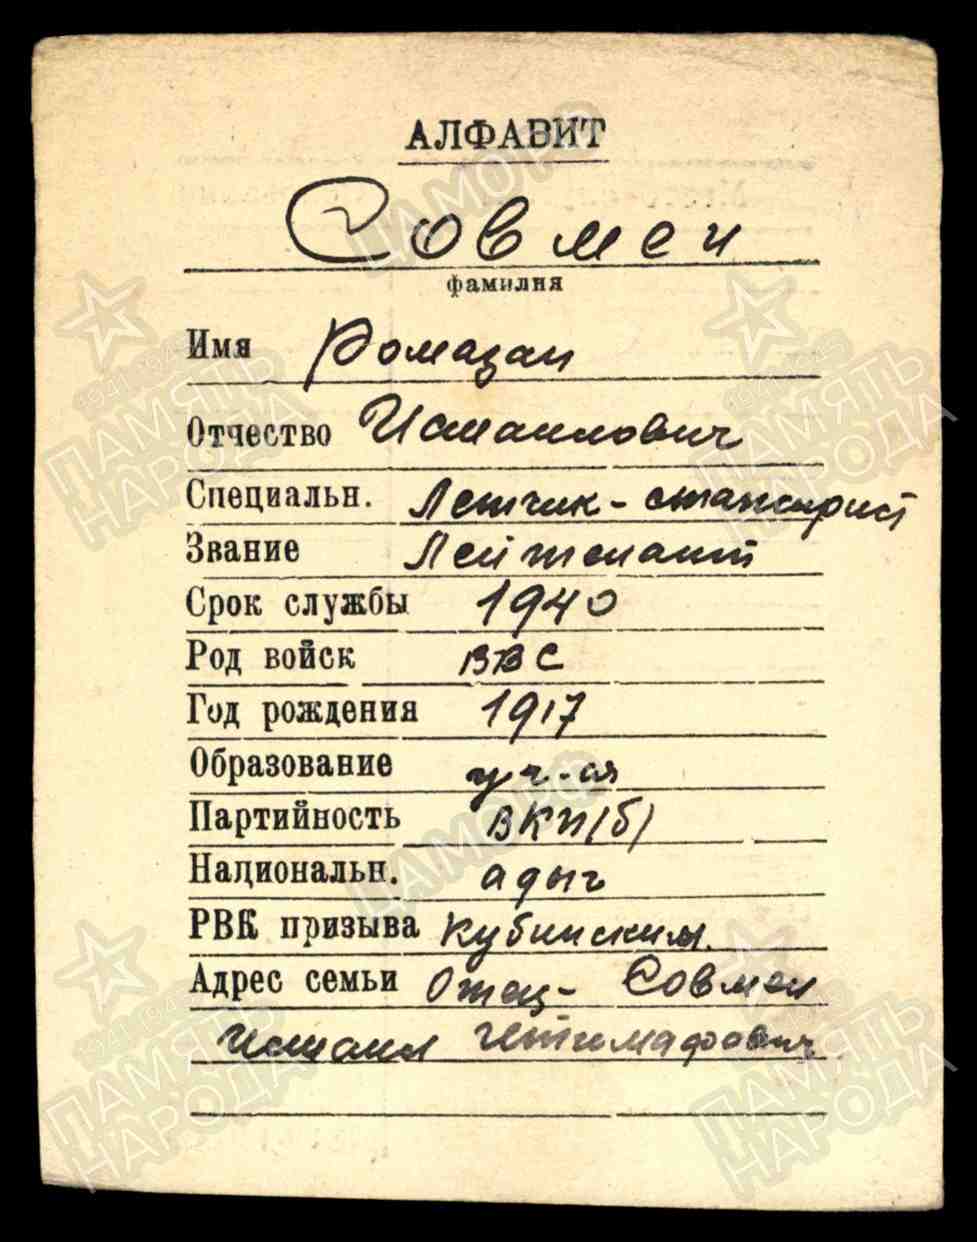 АЛФАВИТ
Совмен
фамилия
Имя Ромазан
Отчество Исмаилович
Специальн. Летчик-
Звание Лейтенант
Срок службы 1940
Род войск ВВС
Год рождения 1917
Образование
Партийность ВКП(б)
Национальн. адыг
РВК призыва Кубинским
Адрес семьи Отец- Совмен
Исмаил
ПАМЯТЬ
НАРОДА
ПАМЯТЬ
НАРОДА
ПАМЯТЬ
НАРОДА
ПАМЯТЬ
НАРОДА